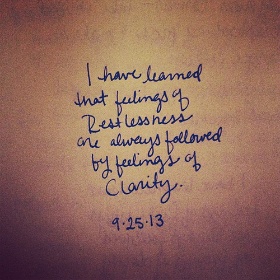 I have learned
that feelings of
Restlessness
are always followed
by feelings of
Clarity.
9.25.13